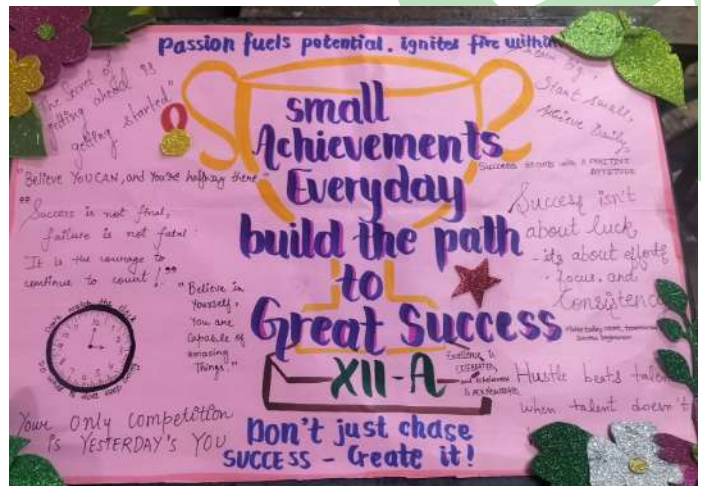 Passion fuels potential. ignites fire within
The Secret of
getting ahead is
getting started"
"Believe YOU CAN, and You're halfway there"
"Success is not final,
failure is not fatal:
It is the courage to
continue to count!"
"Believe in
Yourself,
You are
Capable of
amazing
Things."
Your Only competition
is YESTERDAY'S YOU
small
Achievements
Everyday
build the path
to
Great Success
XII-A
Don't just chase
SUCCESS - Create it!
Start Small,
Achieve Daily,
Success starts with a POSITIVE
ATTITUDE
Success isn't
about luck
- its about efforts
focus, and
Consistency
Make today count, tomorrow's
success begins now
Excellence is
CELEBRATED,
and
is
Hustle beats talent
when talent doesn't